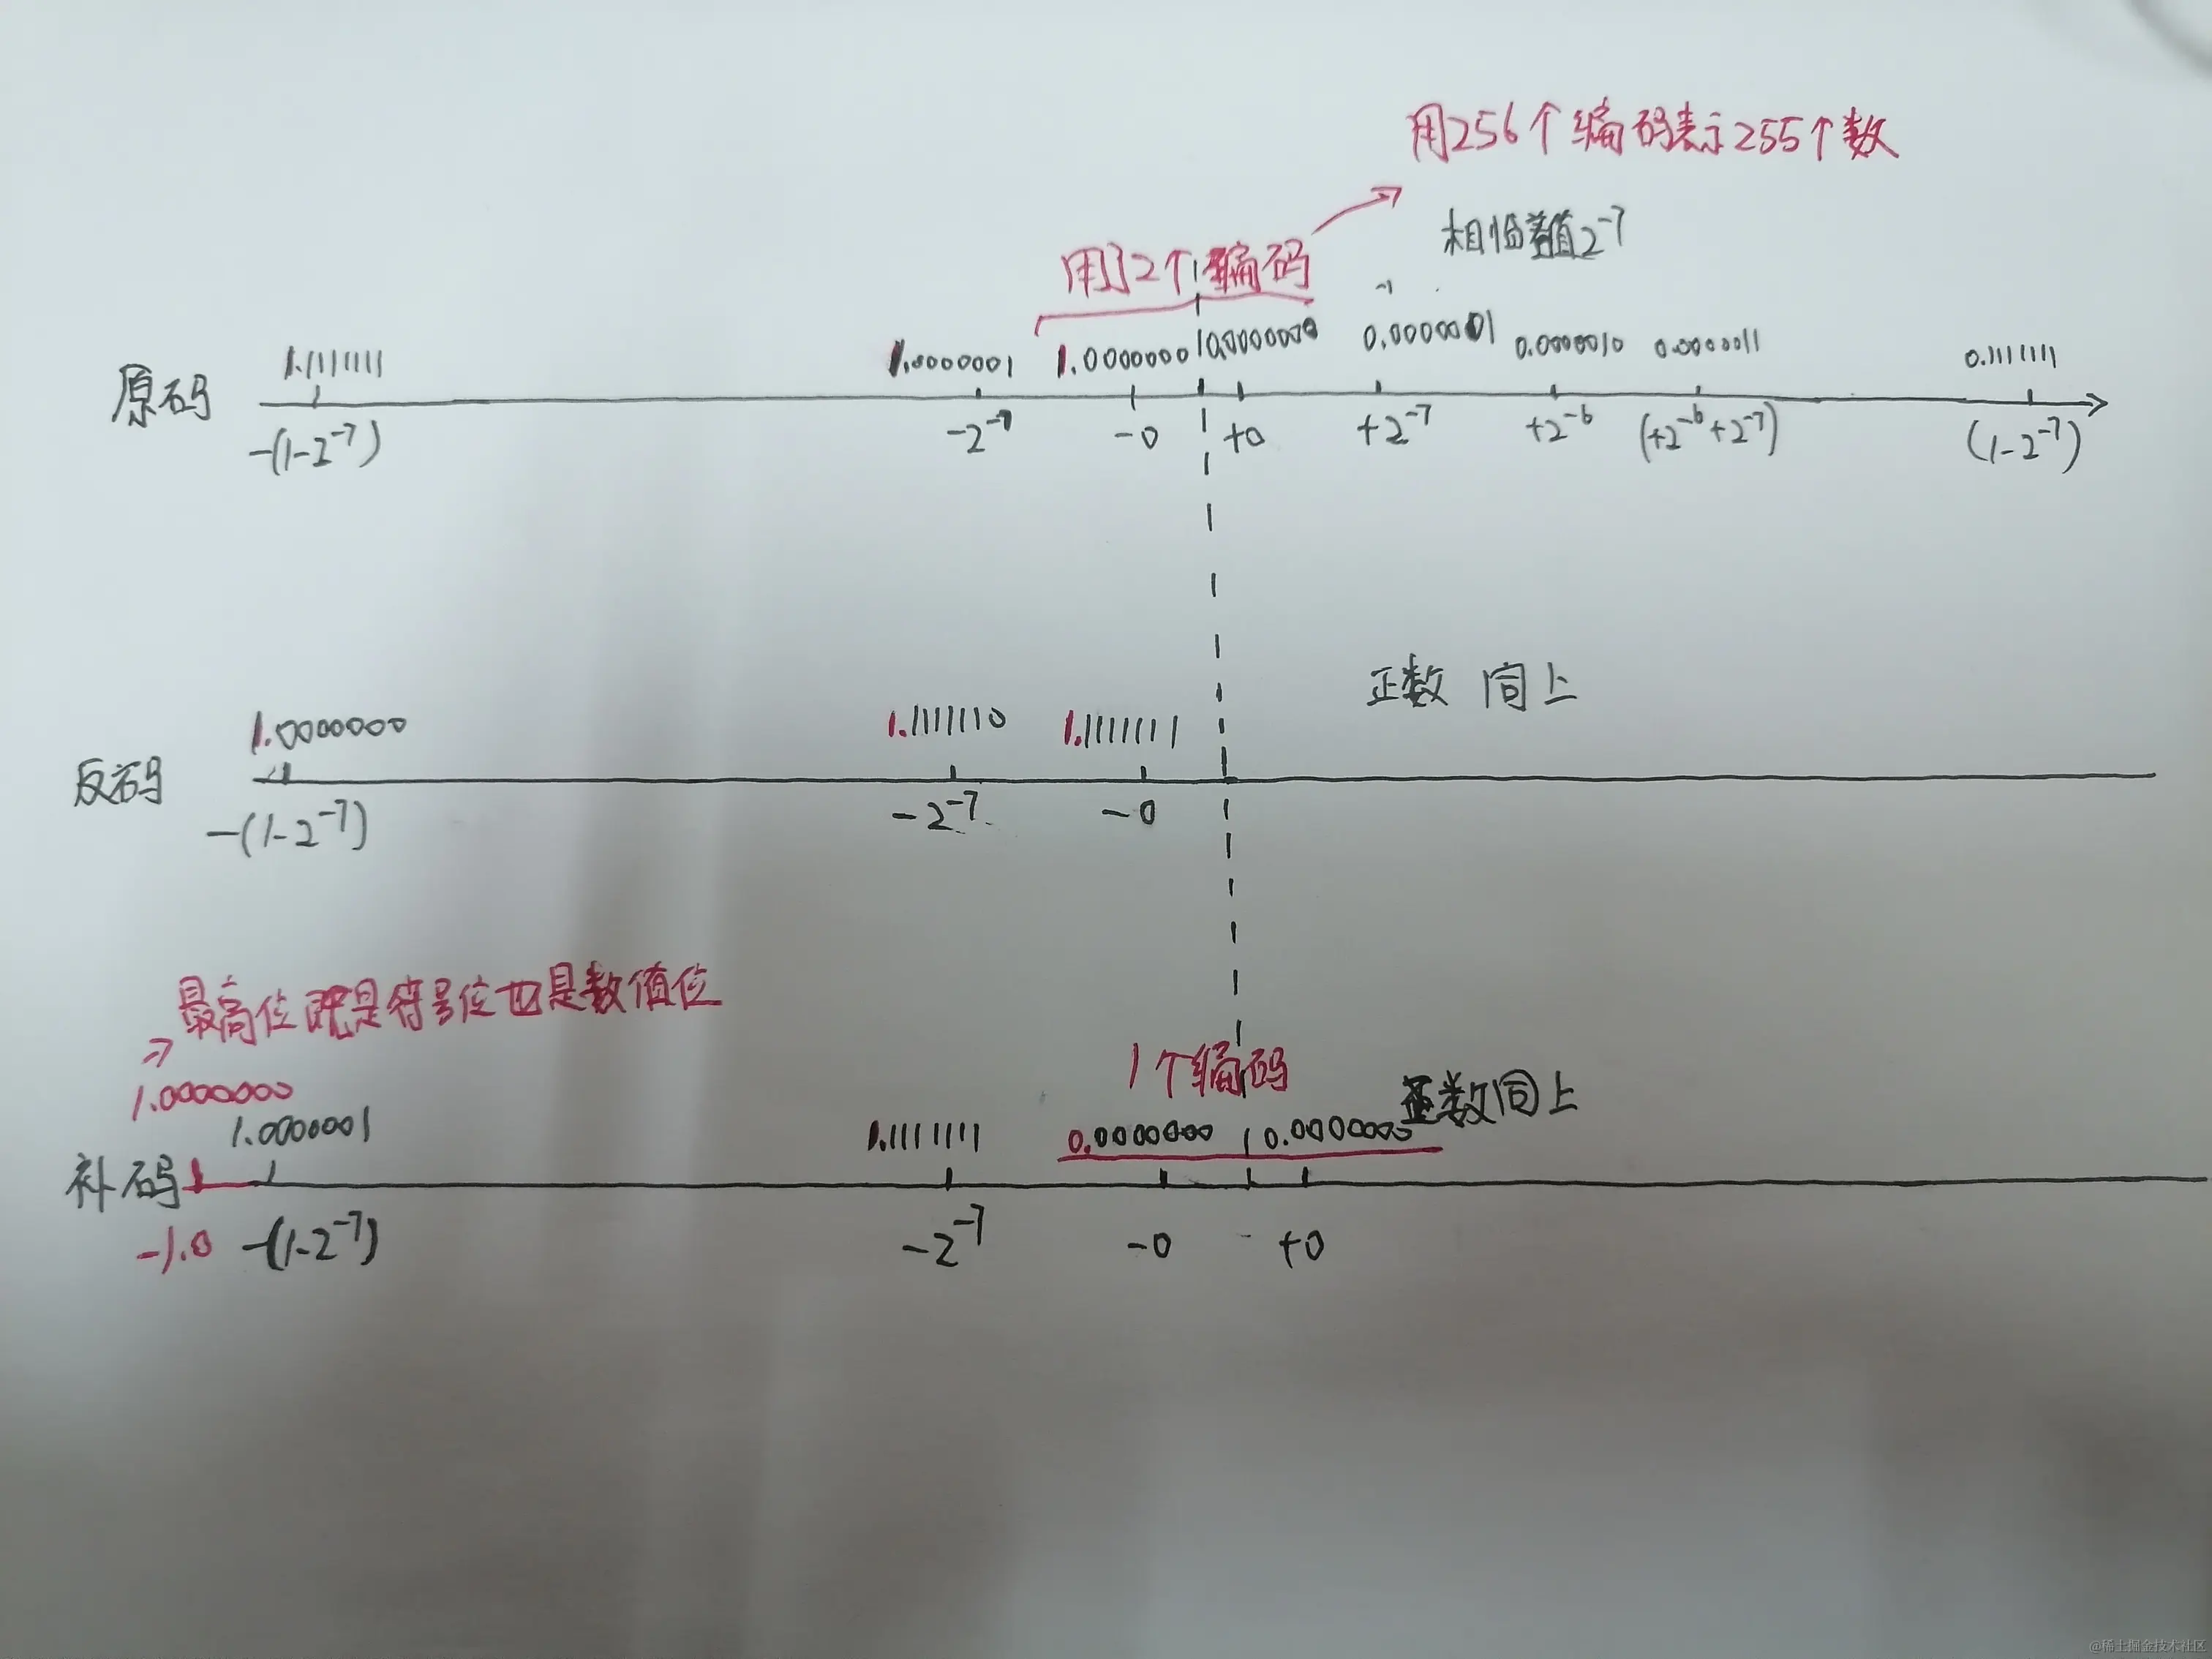 用256个编码表示255个数
相临差值2⁻⁷
用了2个编码
1.1111111 1.0000001 1.0000000 0.0000000 0.0000001 0.0000010 0.0000011 0.1111111
原码
-(1-2⁻⁷) -2⁻⁷ -0 +0 +2⁻⁷ +2⁻⁶ (+2⁻⁶+2⁻⁷) (1-2⁻⁷)
正数 同上
1.0000000 1.1111110 1.1111111
反码
-(1-2⁻⁷) -2⁻⁷ -0
最高位既是符号位也是数值位
1个编码
1.0000000 正数同上
1.0000001 1.1111111 0.0000000 0.0000000
补码
-1.0 -(1-2⁻⁷) -2⁻⁷ -0 +0
@稀土掘金技术社区